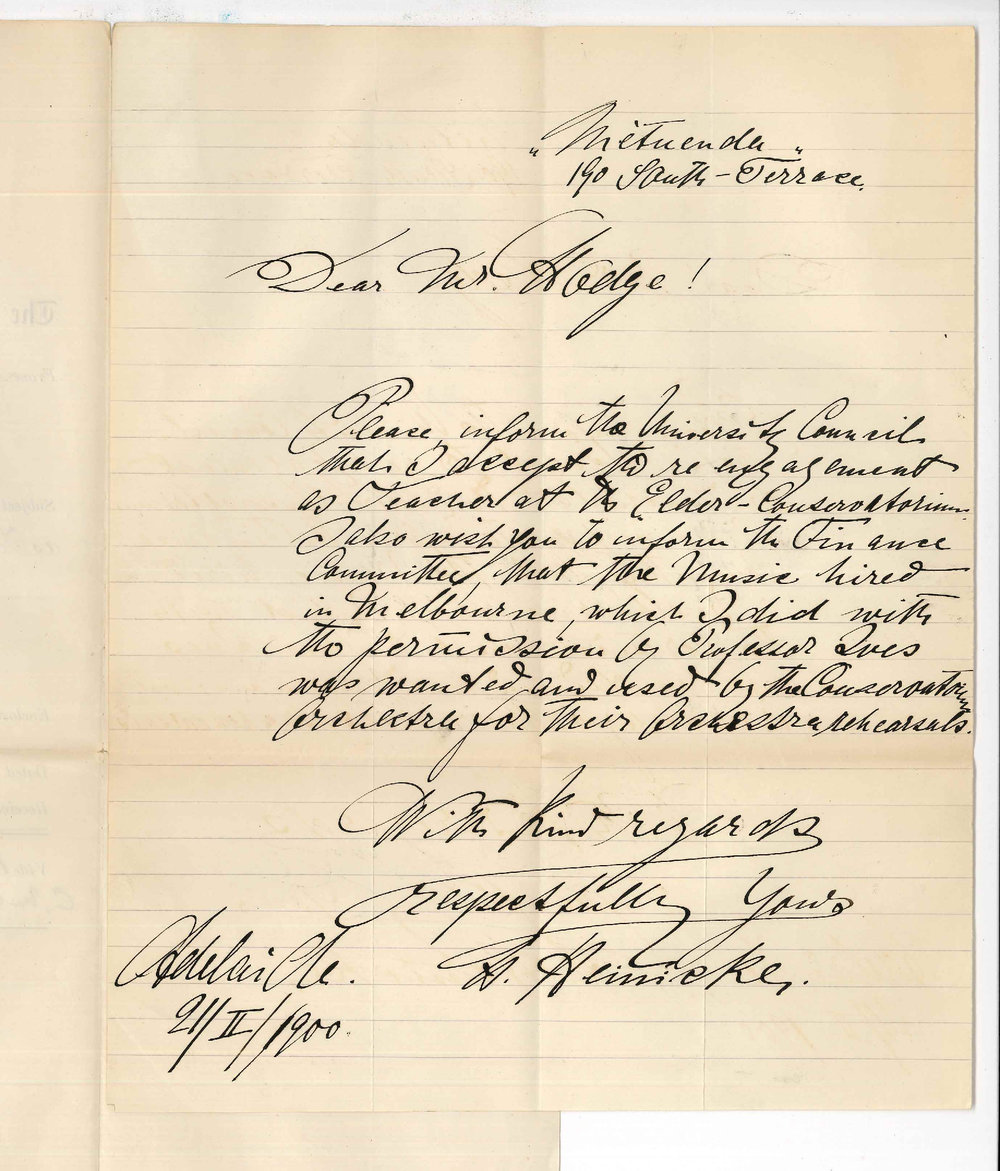 „ Nietuenda „
190 South-Terrace.
Dear Mr. Hodge!
Please, inform the University Council
that I accept the re engagement
as Teacher at the Elder-Conservatorium.
I also wish you to inform the Finance
Committee, that the Music hired
in Melbourne, which I did with
the permission by Professor Ives
was wanted and used by the Conservatorium
Orchestra for their Orchestra rehearsals.
With kind regards
respectfully Yours
H. Heinicke.
Adelaide.
21/II/1900.